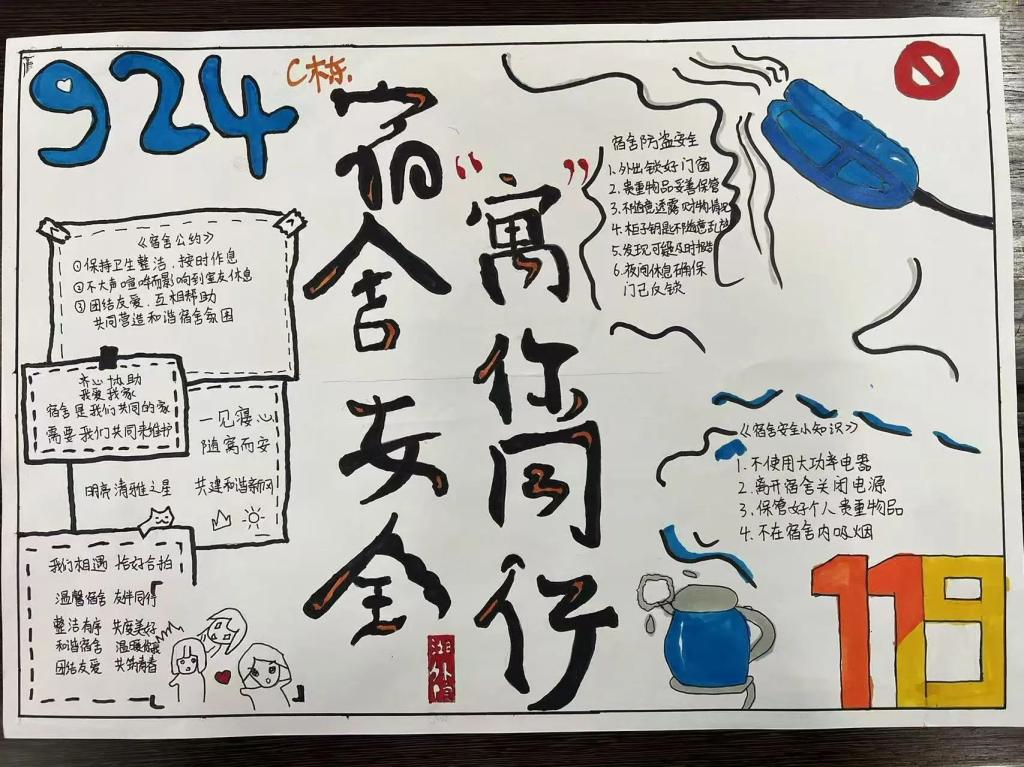 924
C栋
宿舍安全
“寓你同行”
宿舍防盗安全
1.外出锁好门窗
2.贵重物品妥善保管
3.不随意透露财物情况
4.柜子钥匙不随意乱放
5.发现可疑及时报告
6.夜间休息确保
门已反锁
《宿舍公约》
①保持卫生整洁，按时作息
②不大声喧哗而影响到室友休息
③团结友爱，互相帮助
共同营造和谐宿舍氛围
齐心协助
我爱我家
宿舍是我们共同的家
需要我们共同来维护
一见寝心
随寓而安
明亮清雅之星 共建和谐新风
我们相遇 恰好合拍
温馨宿舍 友伴同行
整洁有序 共度美好
和谐宿舍 温暖你我
团结友爱 共筑青春
《宿舍安全小知识》
1.不使用大功率电器
2.离开宿舍关闭电源
3.保管好个人贵重物品
4.不在宿舍内吸烟
119